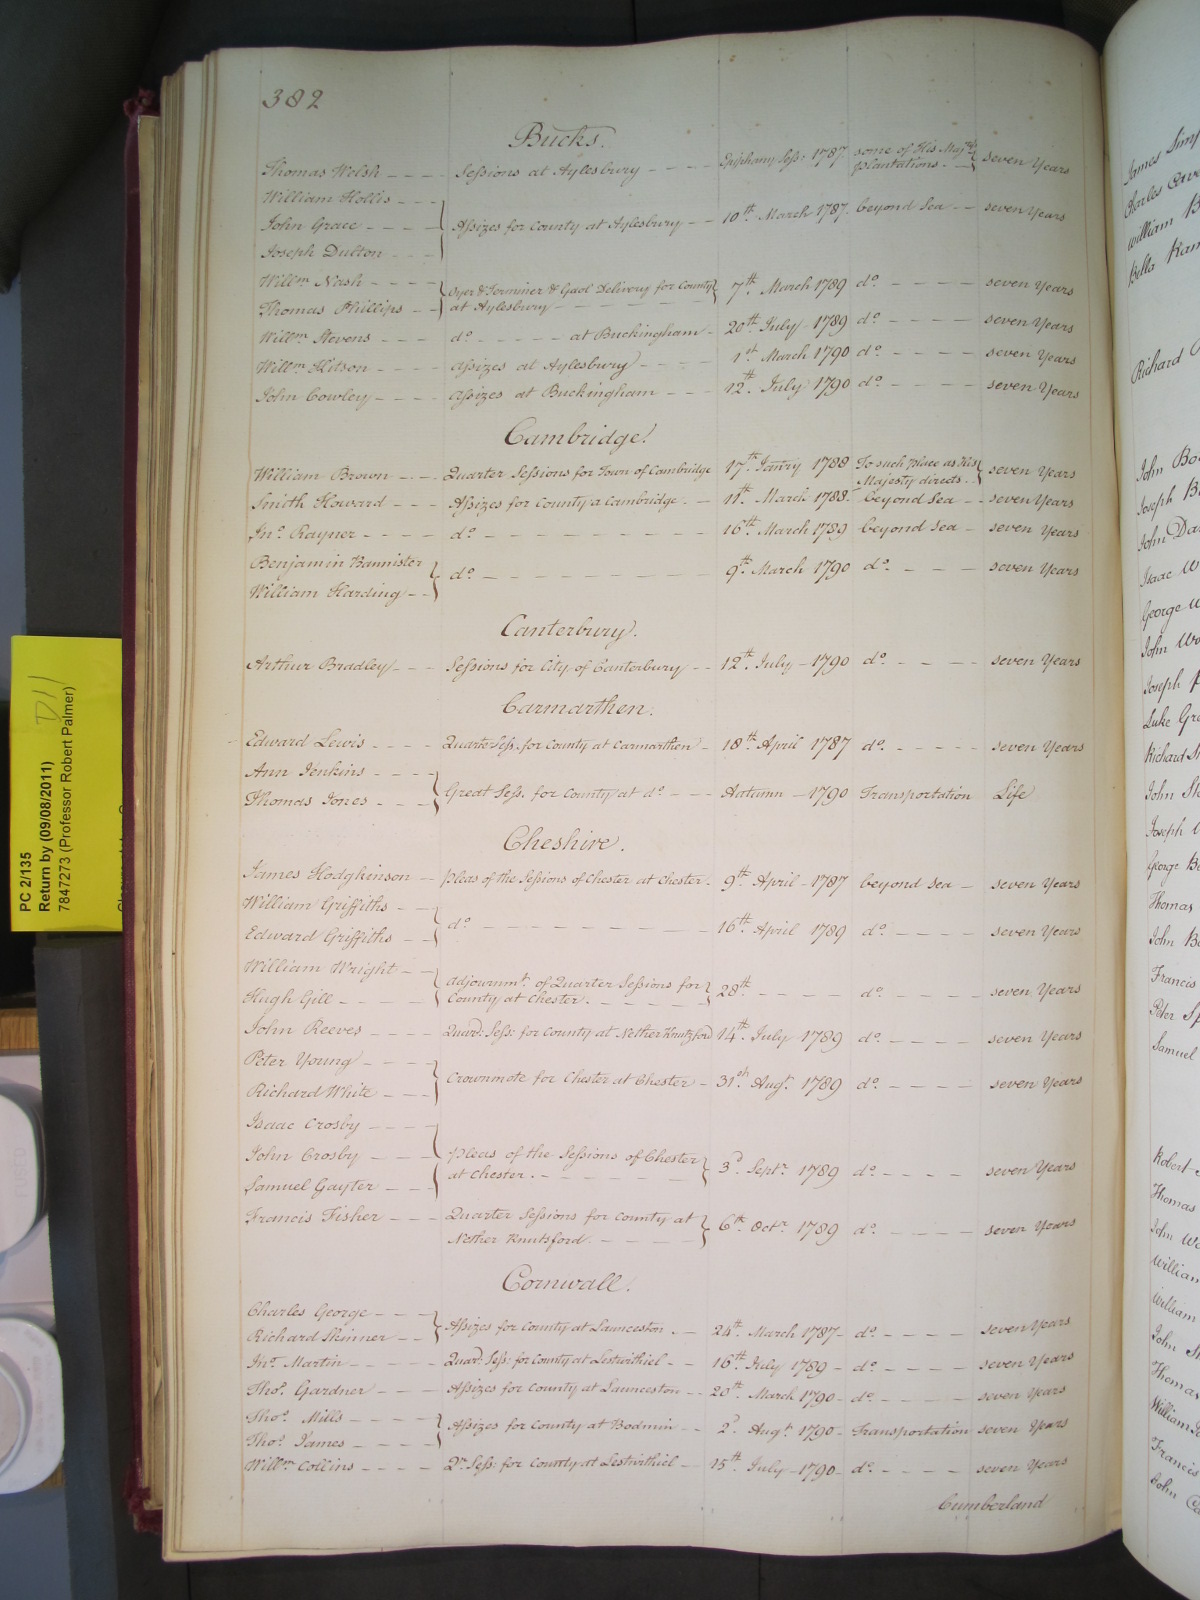 382
Bucks.
Thomas Welsh - - - - Sessions at Aylesbury - - - - Epiphany Sess: 1787 some of His Maj.tys plantations - - } seven Years
William Hollis - - -
John Grace - - - - } Assizes for County at Aylesbury - - 10th March 1787. beyond Sea - - seven Years
Joseph Dulton - - -
Willm Nash - - - - { Oyer & Terminer & Gaol Delivery for County } 7th March 1789 do. - - - - seven Years
Thomas Phillips - - { at Aylesbury - - - - - -
Willm Stevens - - - do. - - - - - at Buckingham - 20th July - 1789 do. - - - - seven Years
Willm Kitson - - - - Assizes at Aylesbury - - - - 1st March 1790 do. - - - - seven Years
John Cowley - - - - Assizes at Buckingham - - - 12th July - 1790 do. - - - - seven Years
Cambridge.
William Brown - - - Quarter Sessions for Town of Cambridge 17th Janry 1788 To such place as His Majesty directs. } seven Years
Smith Howard - - - Assizes for County a Cambridge. - 11th March 1788. beyond Sea - seven Years
Jno. Rayner - - - - do. - - - - - - - - 16th March 1789 beyond sea - seven Years
Benjamin Bannister } do. - - - - - - - - 9th March 1790 do. - - - seven Years
William Harding - - }
Canterbury.
Arthur Bradley - - - Sessions for City of Canterbury - - 12th July - 1790 do. - - - - seven Years
Carmarthen.
Edward Lewis - - - - Quarter Sess. for County at Carmarthen - 18th April 1787 do. - - - - - seven Years
Ann Jenkins - - - -
Thomas Jones - - - } Great Sess. for County at do. - - - Autumn - 1790 Transportation Life
Cheshire.
James Hodghinson - Pleas of the Sessions of Chester at Chester. - 9th April - 1787 beyond sea - seven Years
William Griffiths - -
Edward Griffiths - - } do. - - - - - - - - 16th April 1789 do. - - - - seven Years
William Wright - - { Adjournmt. of Quarter Sessions for
Hugh Gill - - - - { County at Chester. - - - - - } 28th - - - - - do. - - - - seven Years
John Reeves - - - - Quar: Sess: for County at Nether Knutzford 14th July 1789 do. - - - - seven Years
Peter Young - - - -
Richard White - - - } Crownmote for Chester at Chester - 31st Augt. 1789 do. - - - - seven Years
Isaac Crosby - - - -
John Crosby - - - - } Pleas of the Sessions of Chester
Samuel Gayter - - - } at Chester. - - - - - - } 3d Septr. 1789 do. - - - - seven Years
Francis Fisher - - - Quarter Sessions for County at
Nether Knutsford. - - - - - } 6th Octr. 1789 do. - - - - seven Years
Cornwall.
Charles George - - -
Richard Skinner - - } Assizes for County at Launceston. - - 24th March 1787 - do. - - - - seven Years
Jno. Martin - - - - - Quar: Sess: for County at Lestwithiel - - 16th July 1789 - do. - - - - seven Years
Thos. Gardner - - - - Assizes for County at Launceston - - 20th March 1790 - do. - - - - seven Years
Thos. Mills - - - -
Thos. James - - - - } Assizes for County at Bodmin - - 2d Augt. 1790 - Transportation seven Years
Willm Collins - - - - Qr Sess: for County at Lestwithiel - - 15th July - 1790 - do. - - - - seven Years
Cumberland
PC 2/135
Return by (09/08/2011)
7847273 (Professor Robert Palmer)
D11
James
Charles
William
Bella
Richard
John
Joseph
John
Isaac
George
John
Joseph
Luke
Richard
John
Joseph
George
Thomas
John
Francis
Peter
Samuel
Robert
Thomas
John
William
William
John
Thomas
William
Francis
John